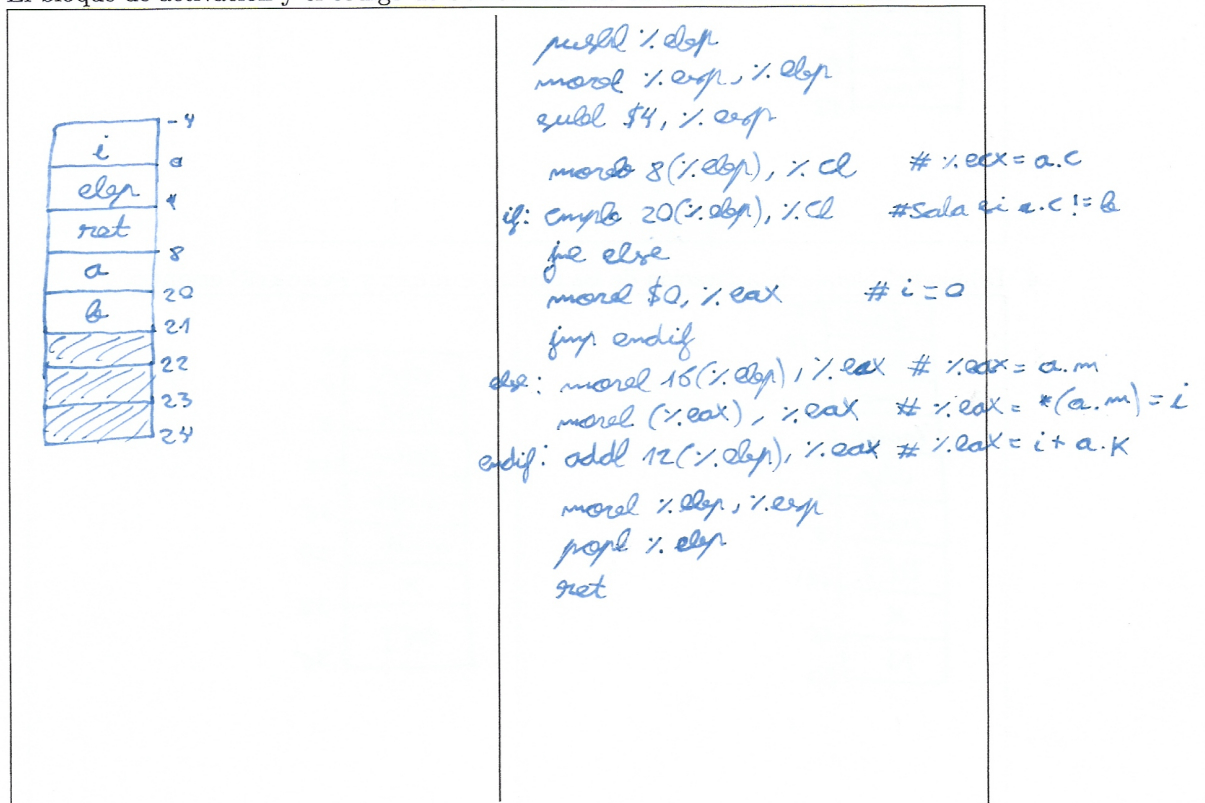 El bloque de activación y el código
-4
i
0
ebp
4
ret
8
a
20
b
21
22
23
24
pushl %ebp
movl %esp, %ebp
subl $4, %esp
movb 8(%ebp), %cl # %ecx = a.c
if: cmpb 20(%ebp), %cl #Salta si a.c != b
jne else
movl $0, %eax # i = 0
jmp endif
else: movl 16(%ebp), %eax # %eax = a.m
movl (%eax), %eax # %eax = *(a.m) = i
endif: addl 12(%ebp), %eax # %eax = i + a.K
movl %ebp, %esp
popl %ebp
ret